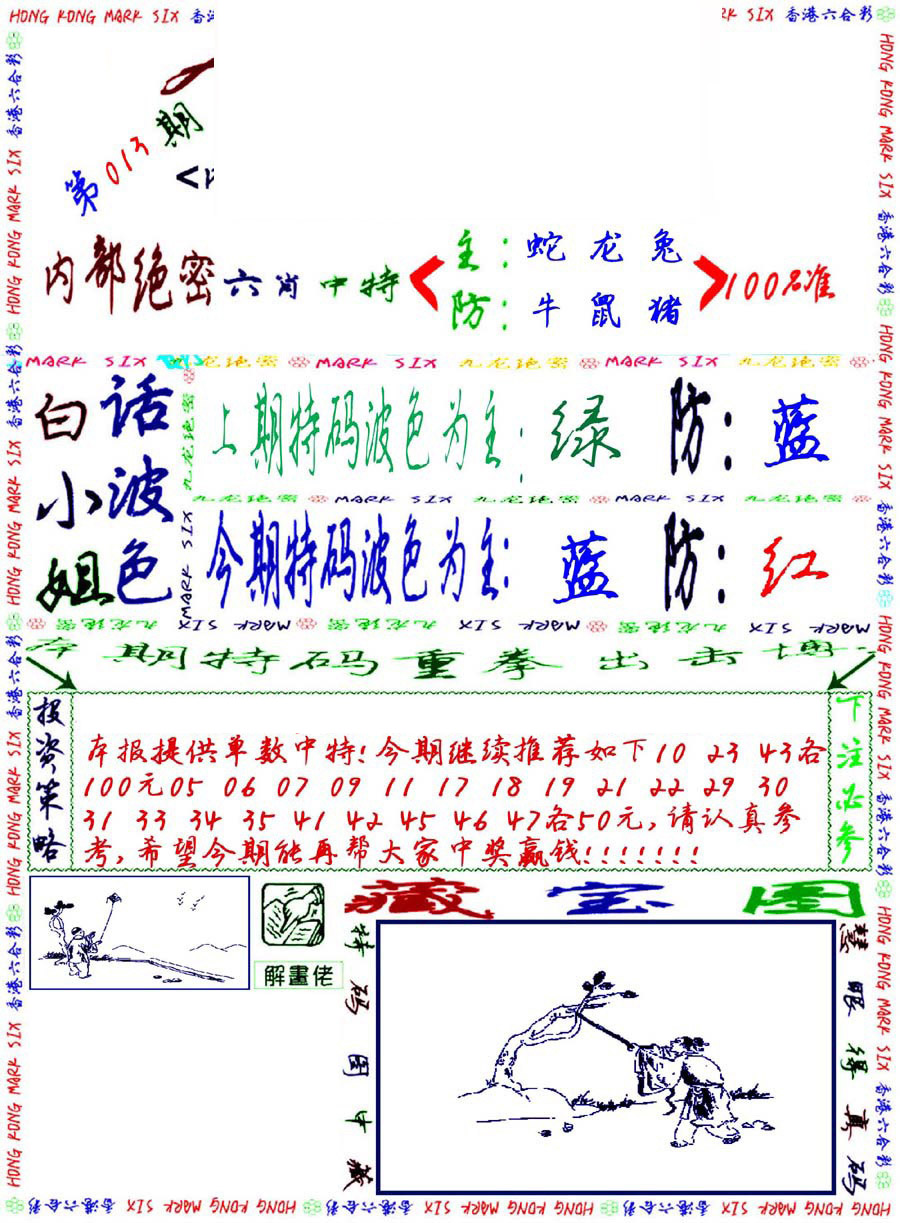 HONG KONG MARK SIX 香港六合彩
第013期
内部绝密六肖中特
主：蛇龙兔
防：牛鼠猪
100%准
MARK SIX 九龙绝密 MARK SIX 九龙绝密 MARK SIX 九龙绝密
白话小姐
波色
上期特码波色为主：绿 防：蓝
九龙绝密 MARK SIX 九龙绝密 MARK SIX 九龙绝密
今期特码波色为主：蓝 防：红
MARK SIX 九龙绝密 MARK SIX 九龙绝密 MARK SIX 九龙绝密
期特码重拳出击
投资策略
本报提供单数中特！今期继续推荐如下10 23 43各
100元05 06 07 09 11 17 18 19 21 22 29 30
31 33 34 35 41 42 45 46 47各50元,请认真参
考,希望今期能再帮大家中奖赢钱!!!!!!!
下注必参
解畫佬
藏宝图
特码图中藏
慧眼得真码
HONG KONG MARK SIX 香港六合彩